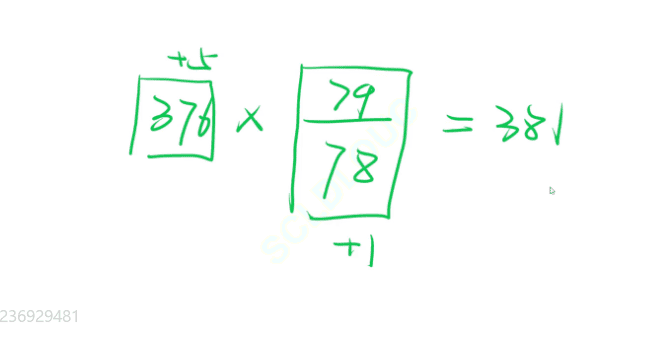 +5
376 × 79/78 = 381
+1
236929481